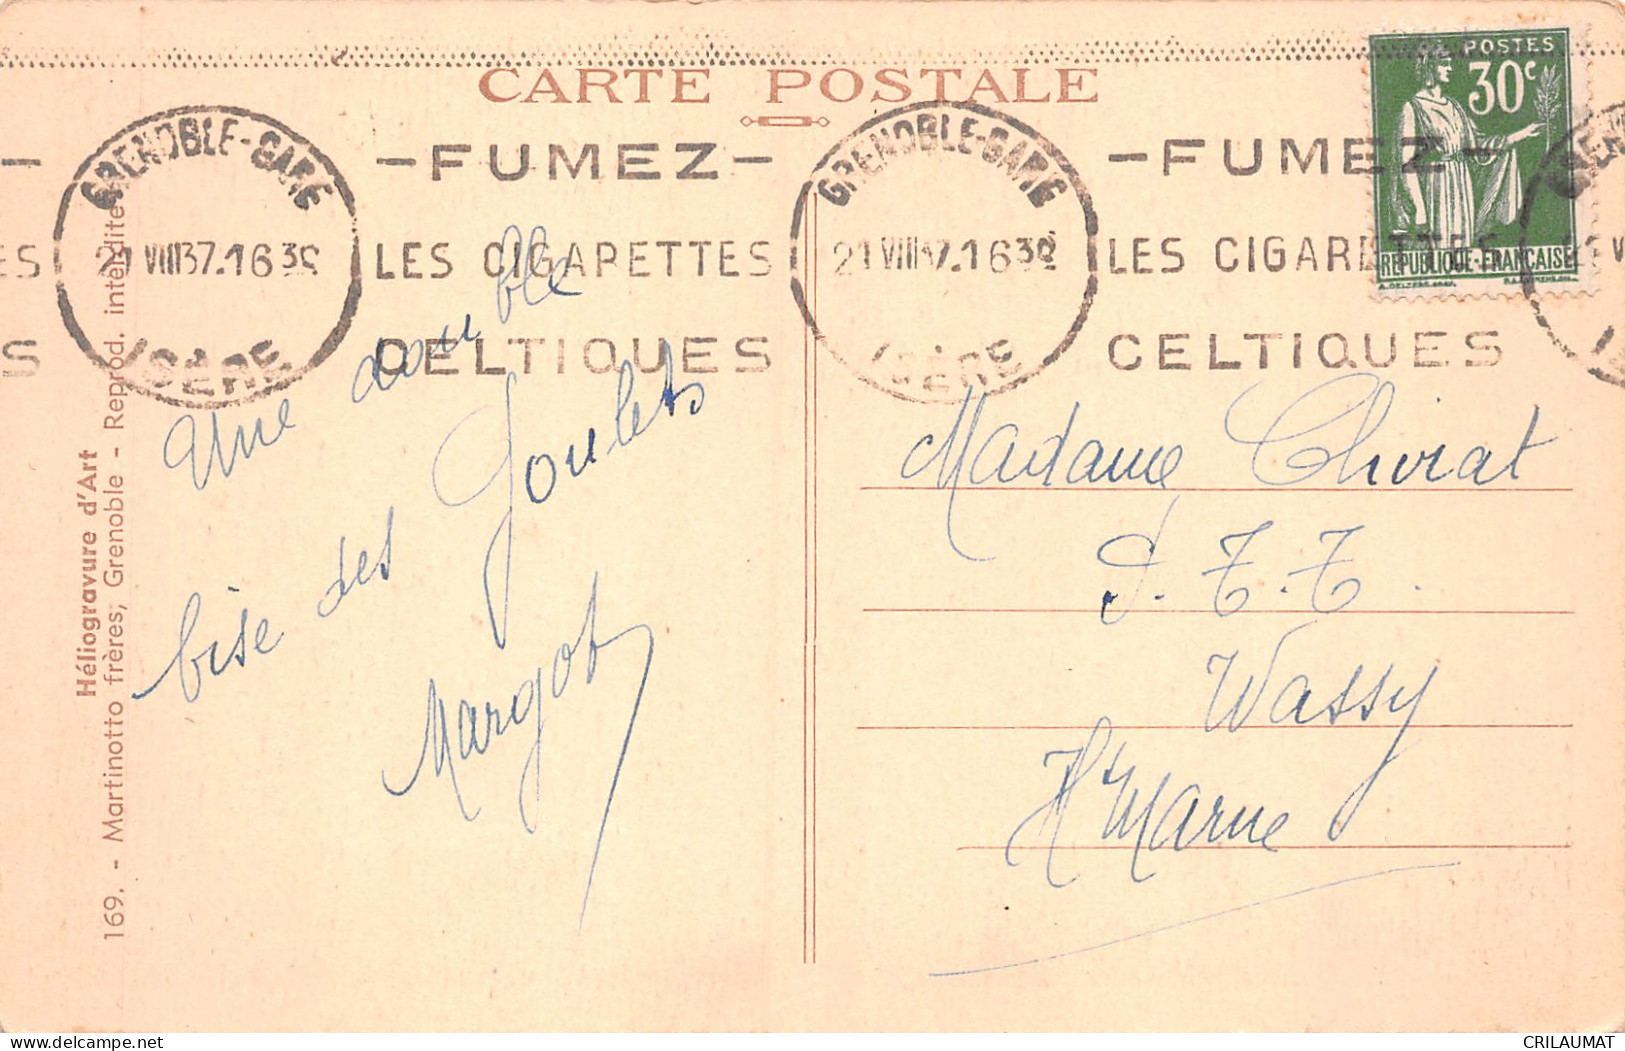 CARTE POSTALE
GRENOBLE-GARE
21 VIII 37.16 30
ISÈRE
-FUMEZ-
LES CIGARETTES
CELTIQUES
GRENOBLE-GARE
21 VIII 37.16 30
ISÈRE
-FUMEZ-
LES CIGARETTES
CELTIQUES
POSTES
30c
REPUBLIQUE-FRANCAISE
ES
S
Une double
bise des Goulets
Margot
Madame Chirat
P.T.T.
Wassy
Hte Marne
Héliogravure d'Art
169. - Martinotto frères, Grenoble - Reprod. interdite
CRILAUMAT